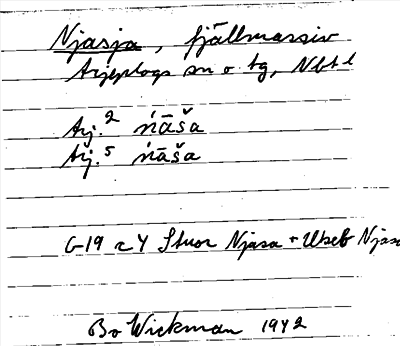 Njasja, fjällmassiv
Arjeplogs sn o. tg, Nbt l
Arj.² ńāša
Arj.⁵ ńāša
G-19 c 4 Stuor Njasa + Utseb Njasa
Bo Wickman 1942